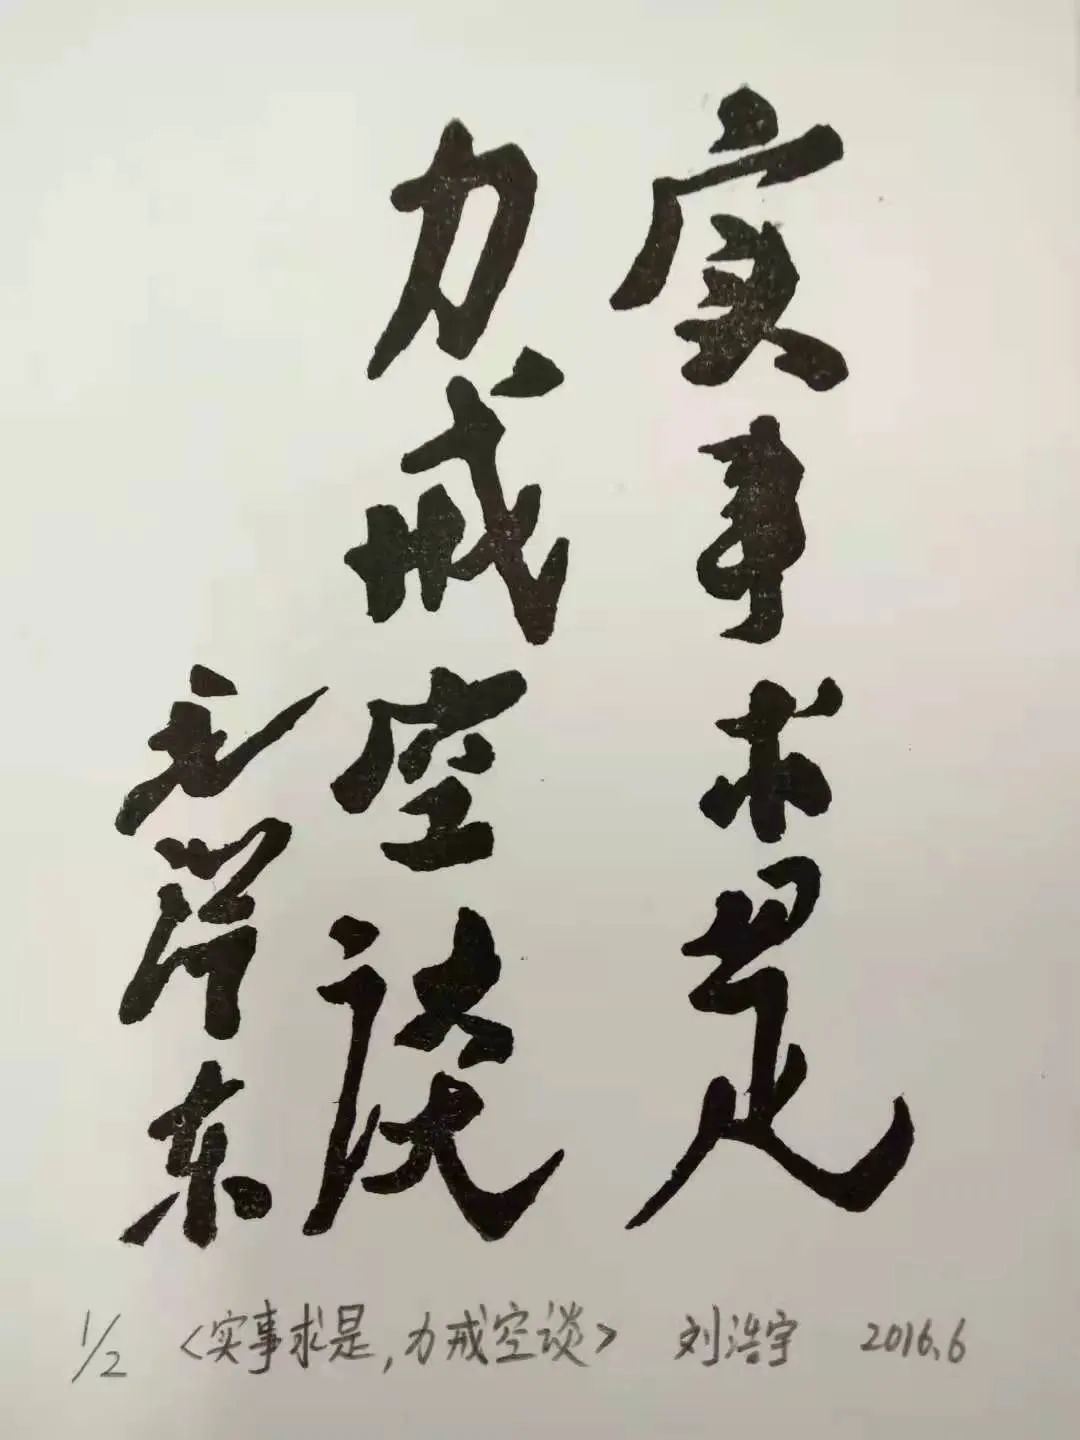 实事求是
力戒空谈
毛泽东
1/2 <实事求是,力戒空谈> 刘浩宇 2016.6